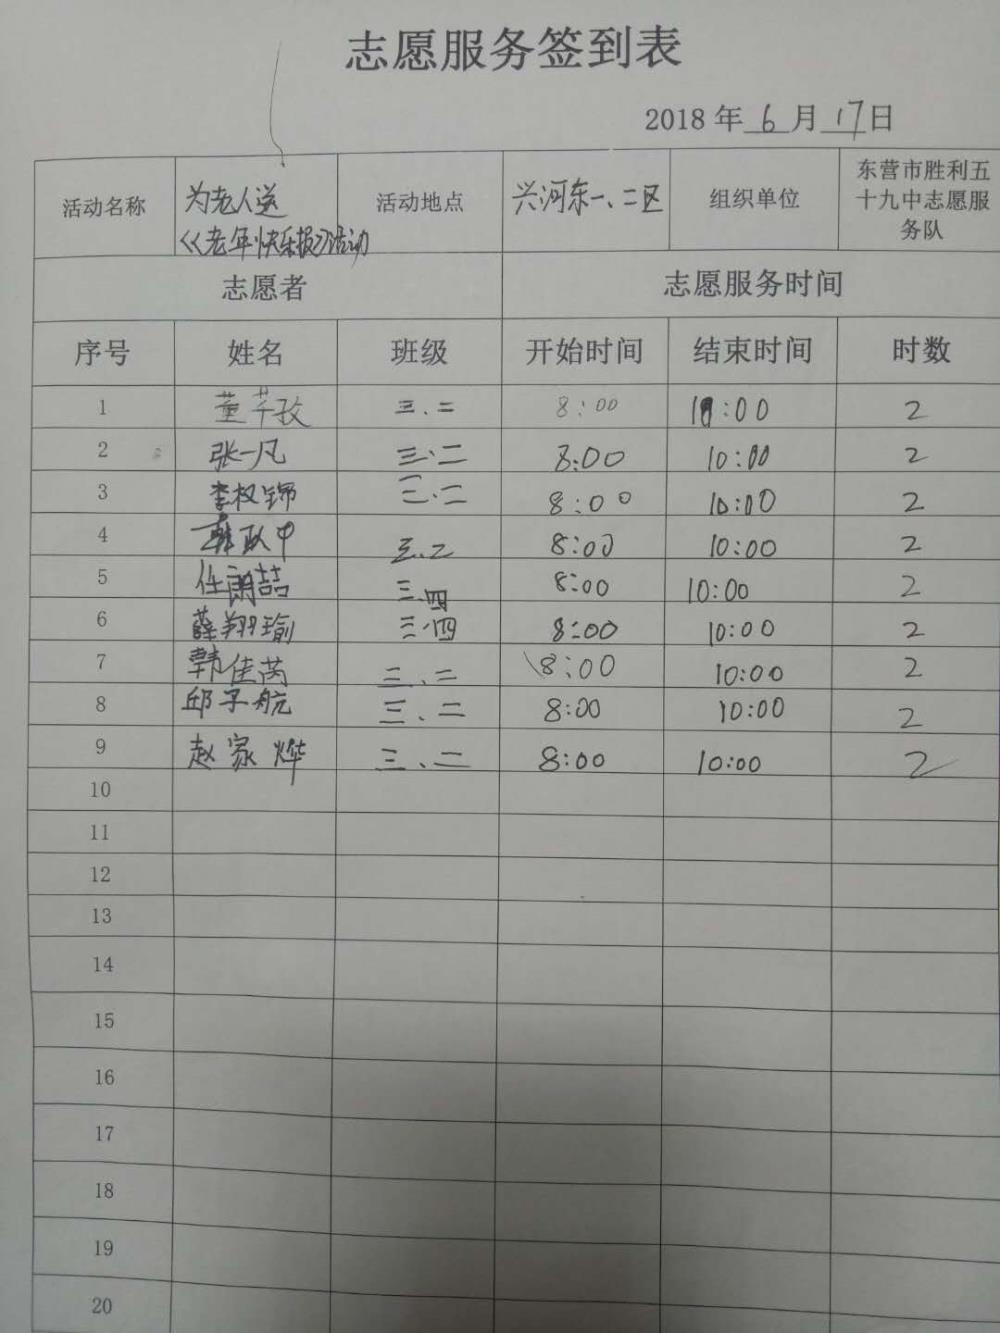 志愿服务签到表
2018 年 6 月 17 日
活动名称 为老人送《老年快乐报》活动 活动地点 兴河东一、二区 组织单位 东营市胜利五十九中志愿服务队
志愿者 志愿服务时间
序号 姓名 班级 开始时间 结束时间 时数
1 董芊孜 三.二 8:00 10:00 2
2 张一凡 三.二 8:00 10:00 2
3 李权锦 三.二 8:00 10:00 2
4 三.二 8:00 10:00 2
5 任 喆 三.四 8:00 10:00 2
6 薛翔瑜 三.四 8:00 10:00 2
7 韩佳芮 三.二 8:00 10:00 2
8 邱子航 三、二 8:00 10:00 2
9 赵家烨 三、二 8:00 10:00 2
10
11
12
13
14
15
16
17
18
19
20